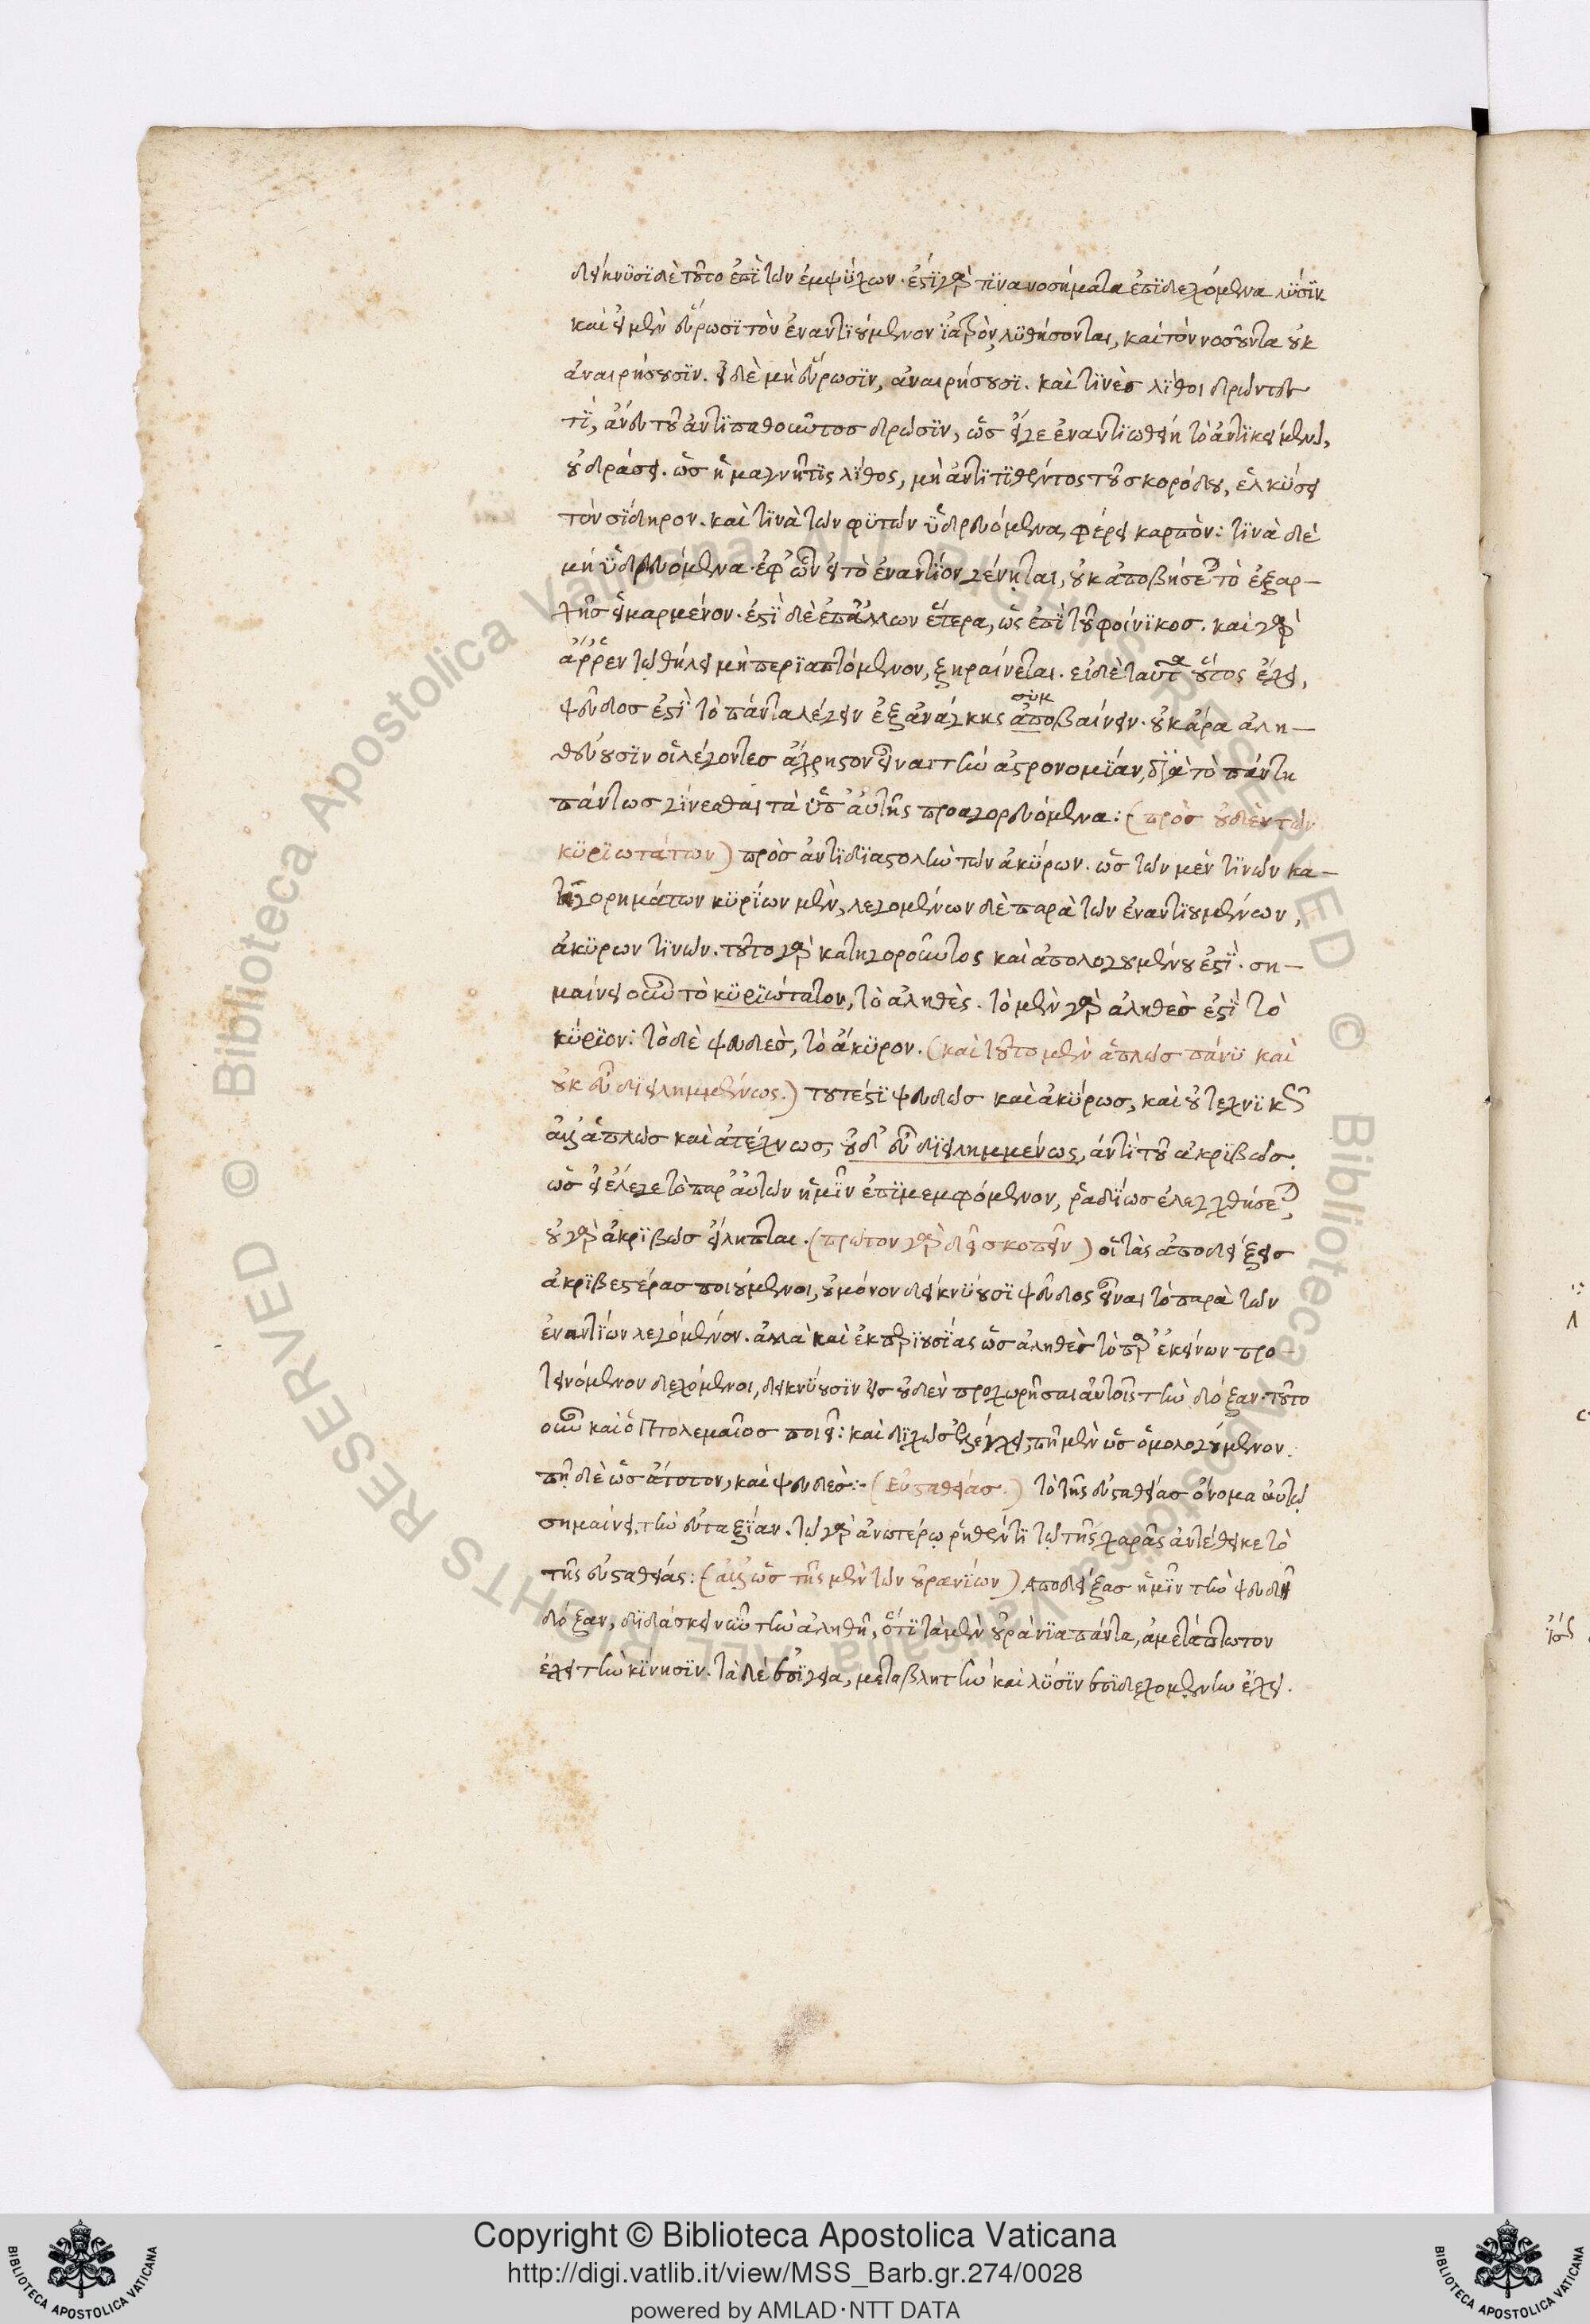 δείκνυσι δὲ τοῦτο ἐπὶ τῶν ἐμψύχων. ἔστι γὰρ τινα νοσήματα ἐπιδεχόμενα λύσιν
καὶ εἰ μὲν εὕρωσι τὸν ἐναντιούμενον ἰατρὸν, λυθήσονται, καὶ τὸν νοσοῦντα οὐκ
ἀναιρήσουσιν. εἰ δὲ μὴ εὕρωσιν, ἀναιρήσουσι. καὶ τινὲς λίθοι δρῶντες
τὶ, ἄνευ τοῦ ἀντιπαθοῦντος δρῶσιν, ὡς εἴγε ἐναντιωθείη τὸ ἀντικείμενον,
οὐ δράσει. ὡς ἡ μαγνῆτις λίθος, μὴ ἀντιτιθέντος τοῦ σκορόδου, ἑλκύσει
τὸν σίδηρον. καὶ τινὰ τῶν φυτῶν ὑδρευόμενα, φέρει καρπὸν: τινὰ δὲ
μὴ ὑδρευόμενα. ἐφ' ὧν εἰ τὸ ἐναντίον γένηται, οὐκ ἀποβήσεται τὸ ἐξαρ–
χῆς εἱμαρμένον. ἔστι δὲ ἐπ' ἄλλων ἕτερα, ὡς ἐπὶ τοῦ φοίνικος. καὶ γὰρ
ἄῤῥεν τῷ θήλει μὴ περιαπτόμενον, ξηραίνεται. εἰ δὲ ταῦτα οὕτως ἔχει,
ψεῦδος ἐστὶ τὸ πάντα λέγειν ἐξ ἀνάγκης ἀποβαίνειν. οὐκ ἄρα ἀλη–
συμ
θεύουσιν οἱ λέγοντες ἄχρηστον εἶναι τὴν ἀστρονομίαν, διὰ τὸ πάντη
πάντως γίνεσθαι τὰ ὑπ' αὐτῆς προαγορευόμενα: (πρὸς οὐδὲν τῶν
κυριωτάτων) πρὸς ἀντιδιαστολὴν τῶν ἀκύρων. ὡς τῶν μὲν τινῶν κα–
τηγορημάτων κυρίων μὲν, λεγομένων δὲ παρὰ τῶν ἐναντιουμένων,
ἀκύρων τινῶν. τοῦτο γὰρ κατηγοροῦντος καὶ ἀπολογουμένου ἐστὶ. ση–
μαίνει οὖν τὸ κυριώτατον, τὸ ἀληθὲς. τὸ μὲν γὰρ ἀληθὲς ἐστὶ τὸ
κύριον: τὸ δὲ ψευδὲς, τὸ ἄκυρον. (καὶ τοῦτο μὲν ἁπλῶς πάνυ καὶ
οὐκ εὖ διειλημμένως.) τουτέστι ψευδῶς καὶ ἀκύρως, καὶ οὐ τεχνικῶς
ἀλλ' ἁπλῶς καὶ ἀτέχνως, οὐδ' εὖ διειλημμένως, ἀντὶ τοῦ ἀκριβῶς.
ὡς εἰ ἔλεγε τὸ παρ' αὐτῶν ἡμῖν ἐπιμεμφόμενον, ῥαδίως ἐλεγχθήσεται,
οὐ γὰρ ἀκριβῶς εἴληπται. (πρῶτον γὰρ δεῖ σκοπεῖν) οἱ τὰς ἀποδείξεις
ἀκριβεστέρας ποιούμενοι, οὐ μόνον δεικνύουσι ψεῦδος εἶναι τὸ παρὰ τῶν
ἐναντίων λεγόμενον. ἀλλὰ καὶ ἐκ περιουσίας ὡς ἀληθὲς τὸ παρ' ἐκείνων προ–
τεινόμενον δεχόμενοι, δεικνύουσιν εἰς οὐδὲν προχωρῆσαι αὐτοῖς τὴν δόξαν. τοῦτο
οὖν καὶ ὁ Πτολεμαῖος ποιεῖ: καὶ διχῶς ἐξελέγχει, πῆ μὲν ὡς ὁμολογούμενον.
πῆ δὲ ὡς ἄτοπον, καὶ ψευδὲς:– (Εὐσταθείας.) τὸ τῆς εὐσταθείας ὄνομα αὐτῷ
σημαίνει, τὴν εὐταξίαν. τῷ γὰρ ἀνωτέρῳ ῥηθέντι τῷ τῆς χαρᾶς ἀντέθηκε τὸ
τῆς εὐσταθείας: (ἀλλ' ὡς τῆς μὲν τῶν οὐρανίων) Ἀποδείξας ἡμῖν τὴν ψευδῆ
δόξαν, διδάσκει νῦν τὴν ἀληθῆ, ὅτι τὰ μὲν οὐράνια πάντα, ἀμετάπτωτον
ἔχει τὴν κίνησιν. τὰ δὲ ἐπίγεια, μεταβλητὴν καὶ λύσιν ἐπιδεχομένην ἔχει.
Copyright © Biblioteca Apostolica Vaticana
http://digi.vatlib.it/view/MSS_Barb.gr.274/0028
powered by AMLAD·NTT DATA